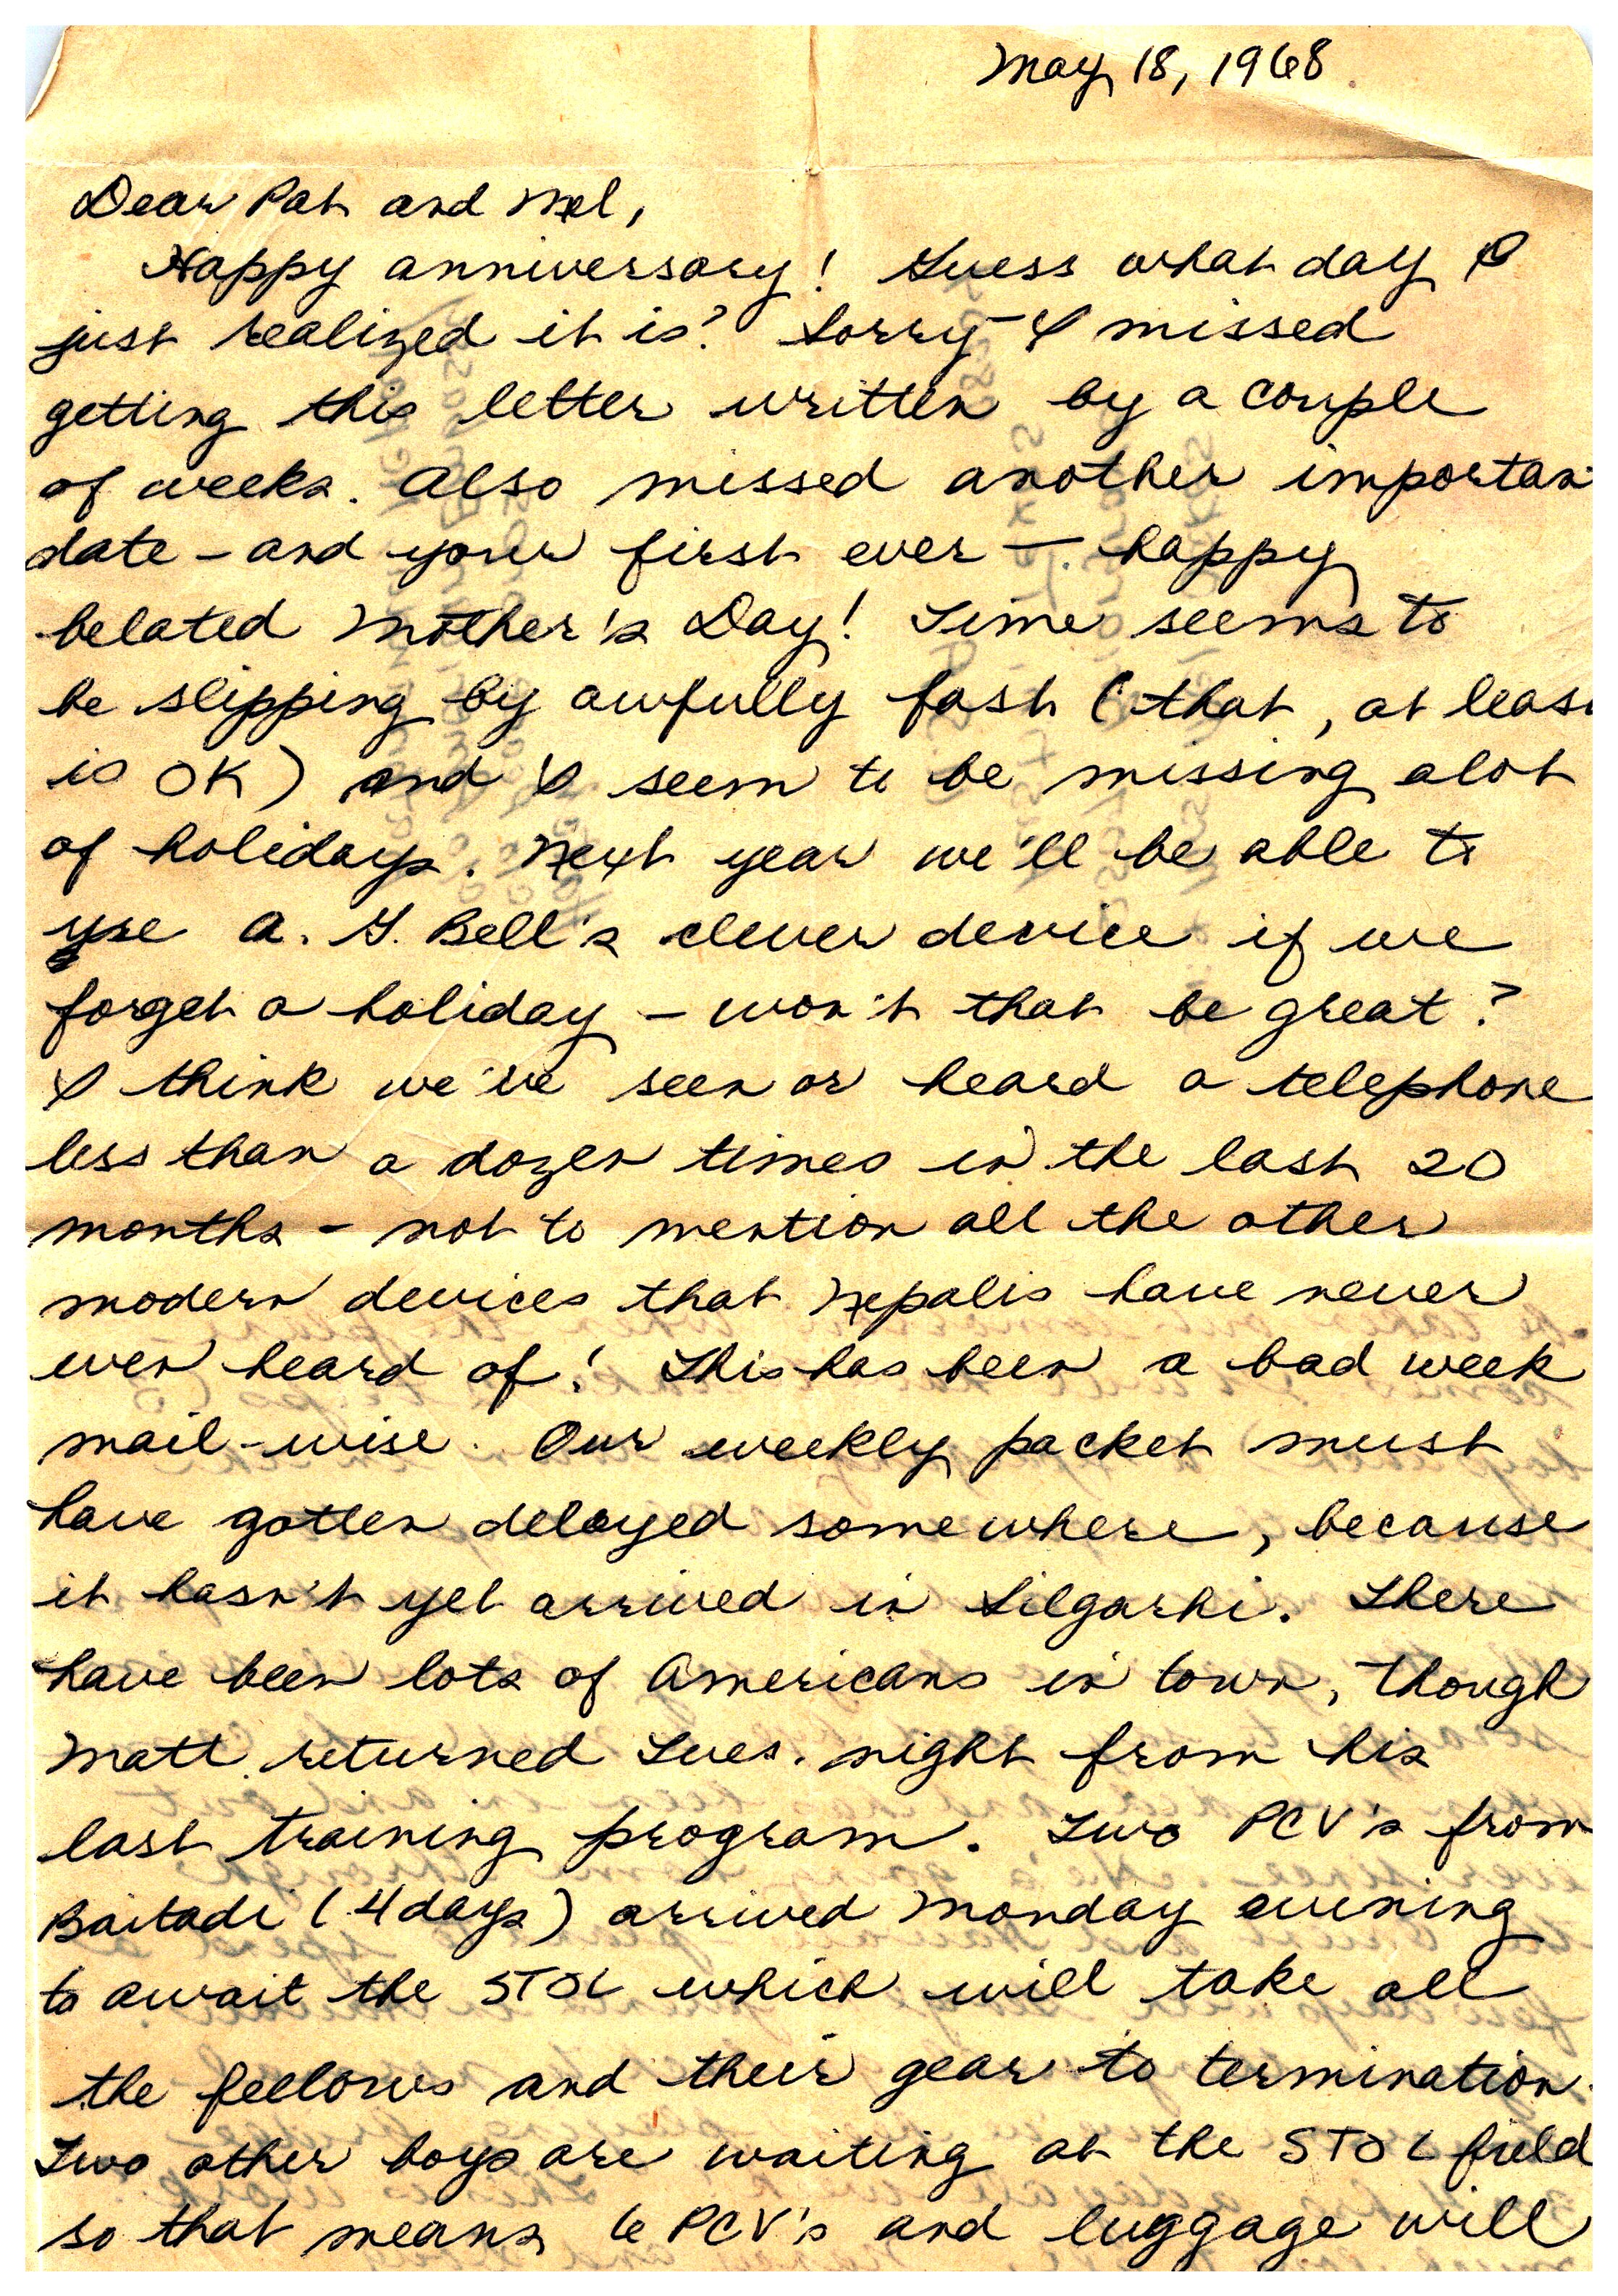 May 18, 1968
Dear Pat and Mel,
Happy anniversary! Guess what day I
just realized it is? Sorry I missed
getting this letter written by a couple
of weeks. Also missed another importan
date - and your first ever - happy
belated Mother's Day! Time seems to
be slipping by awfully fast (that, at leas
is OK) and I seem to be missing alot
of holidays. Next year we'll be able to
use A. G. Bell's clever device if we
forget a holiday - won't that be great?
I think we've seen or heard a telephone
less than a dozen times in the last 20
months - not to mention all the other
modern devices that Nepalis have never
even heard of! This has been a bad week
mail-wise. Our weekly packet must
have gotten delayed somewhere, because
it hasn't yet arrived in Silgarhi. There
have been lots of Americans in town, though
Matt returned Tues. night from his
last training program. Two PCV's from
Baitadi (4 days) arrived Monday evening
to await the STOL which will take all
the fellows and their gear to termination.
Two other boys are waiting at the STOL field
so that means 6 PCV's and luggage will